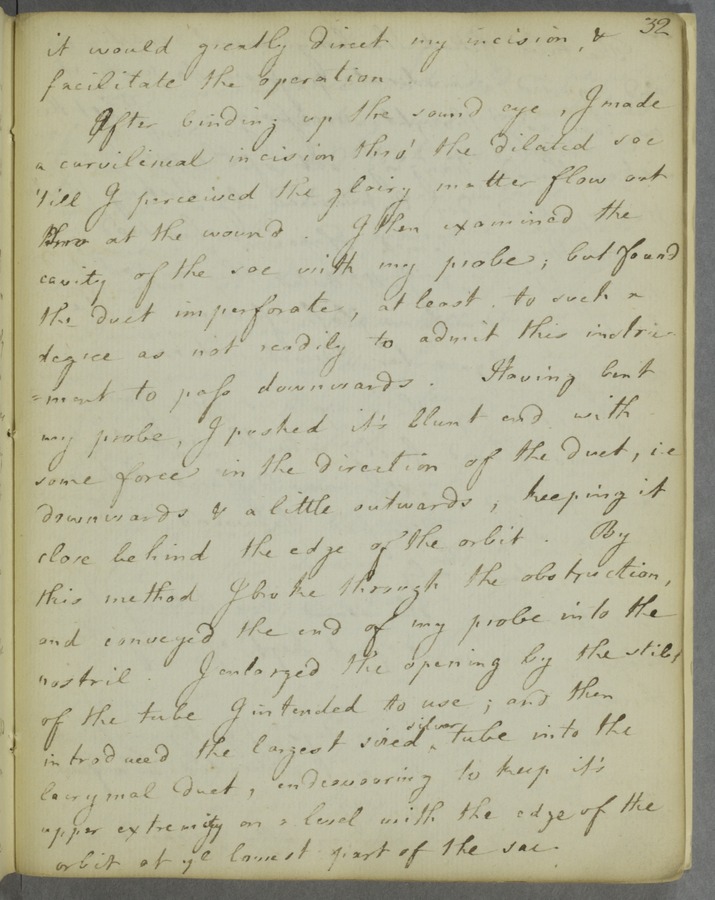 32
it would greatly direct my incision, &
facilitate the operation.
After binding up the sound eye, I made
a curvilineal incision thro' the dilated sac
'till I perceived the glairy matter flow out
at the wound. I then examined the
cavity of the sac with my probe; but found
the duct imperforate, at least to such a
degree as not readily to admit this instru-
=ment to pass downwards. Having bent
my probe, I pushed it's blunt end with
some force in the direction of the duct, i.e
downwards & a little outwards, keeping it
close behind the edge of the orbit. By
this method I broke through the obstruction,
and conveyed the end of my probe into the
nostril. I enlarged the opening by the stilet
of the tube I intended to use; and then
introduced the largest sized ^silver tube into the
lacrymal duct, endeavouring to keep it's
upper extremity on a level with the edge of the
orbit at ye lowest part of the sac.